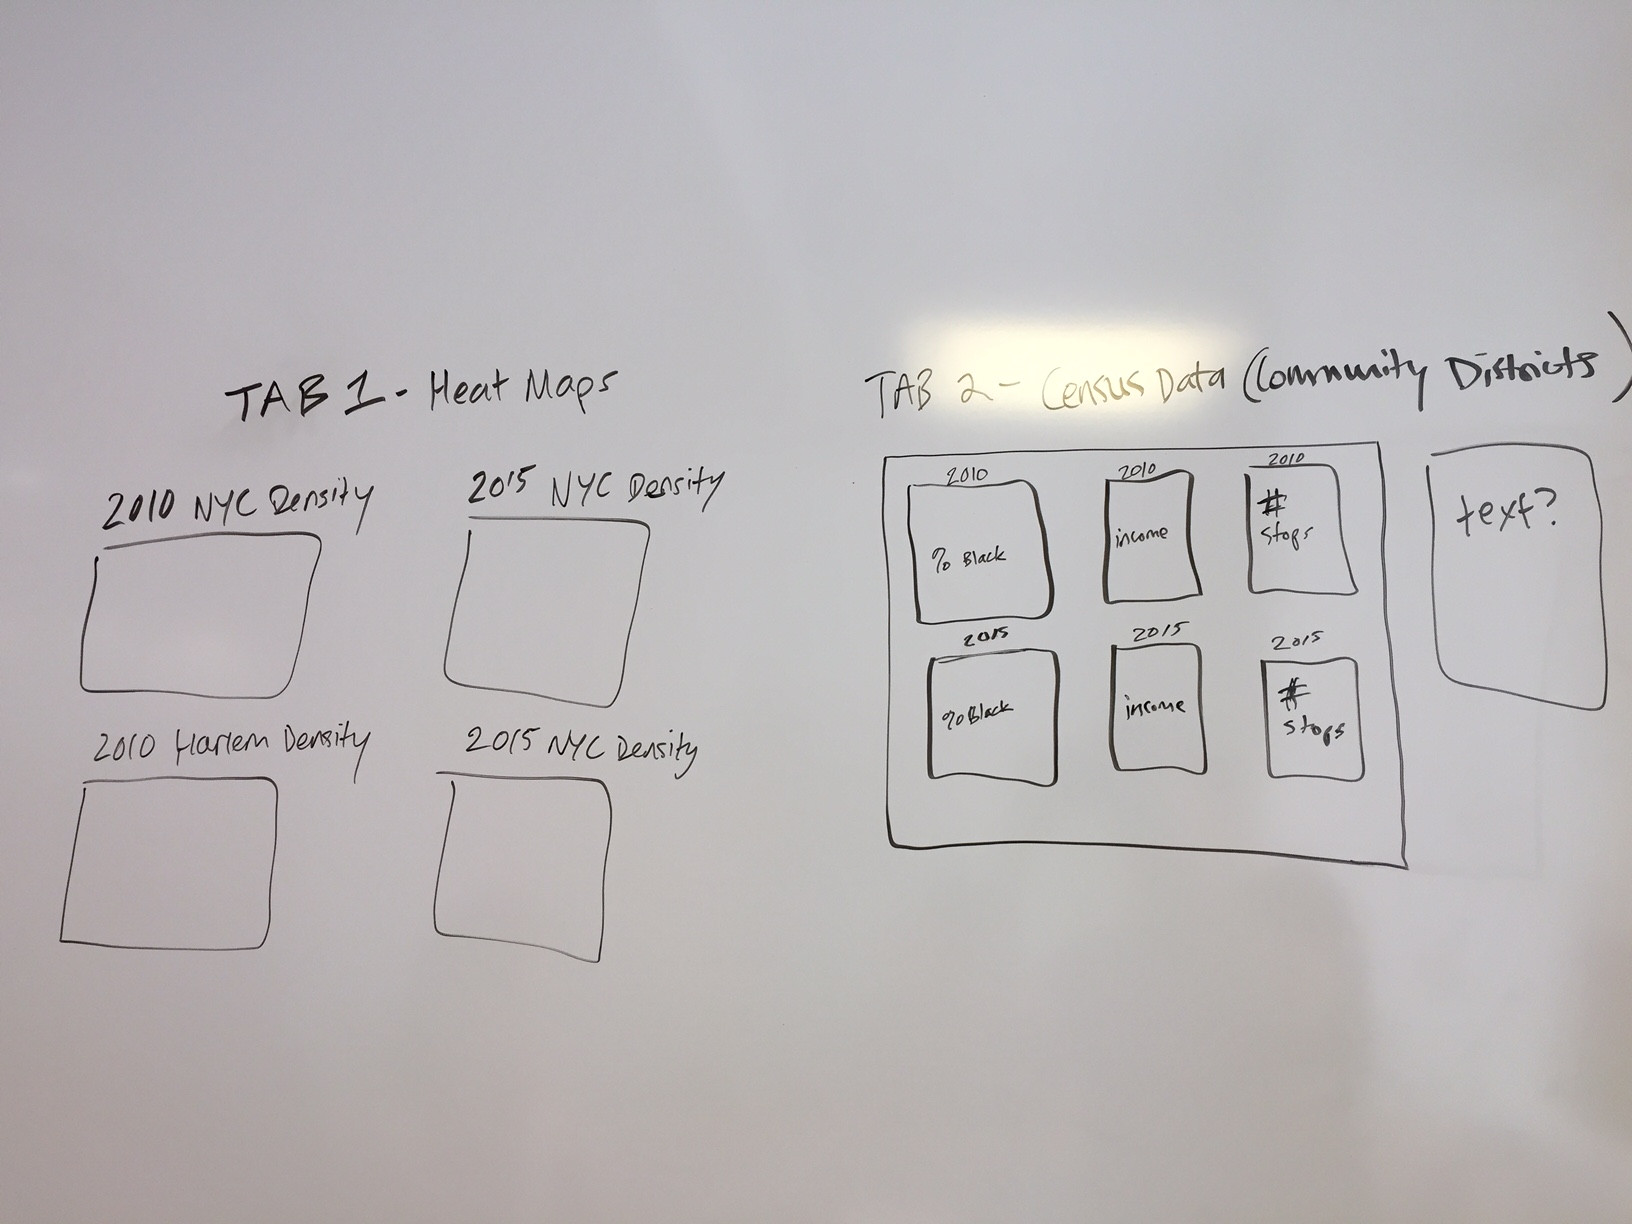 TAB 1 - Heat Maps
2010 NYC Density
2015 NYC Density
2010 Harlem Density
2015 NYC Density
TAB 2 - Census Data (Community Districts)
2010
% Black
2010
income
2010
# stops
2015
% Black
2015
income
2015
# stops
text?